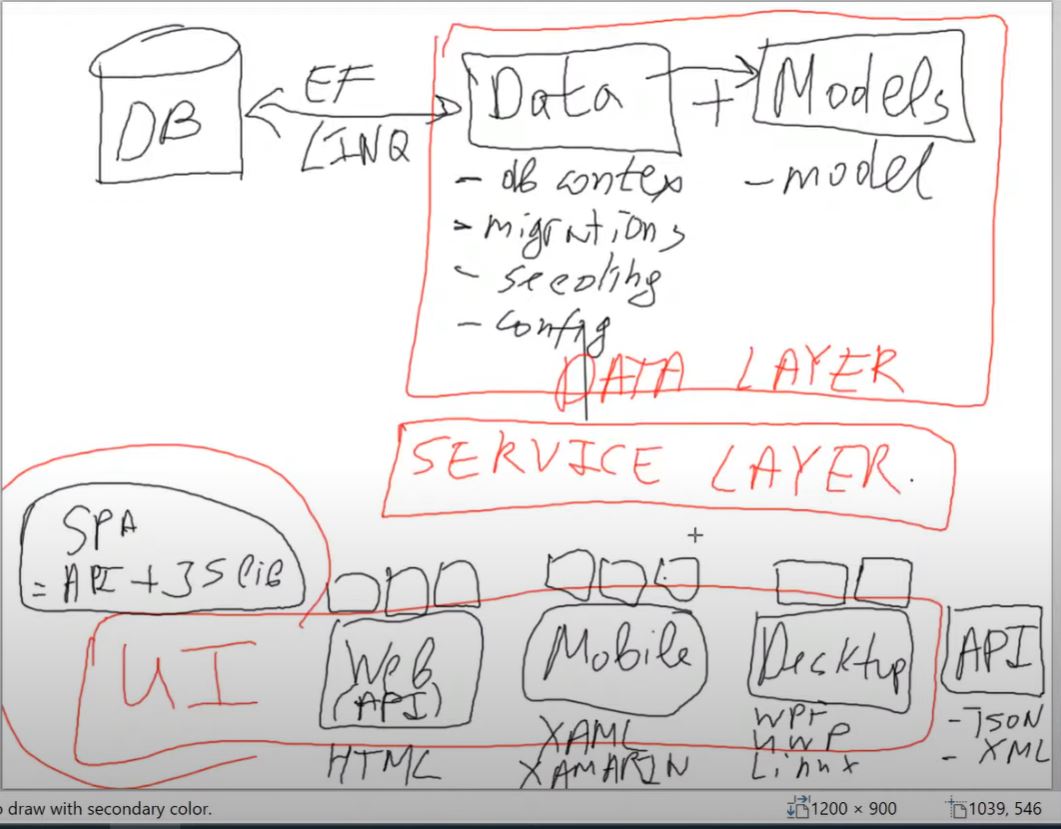 DB
EF
LINQ
Data
+
Models
- db contex
- migrations
- seeding
- config
- model
DATA LAYER
SERVICE LAYER.
SPA
= API + JS lib
UI
Web
(API)
HTML
Mobile
XAML
XAMARIN
Decktup
WPF
UWP
Linux
API
- JSON
- XML
o draw with secondary color.
1200 × 900
1039, 546